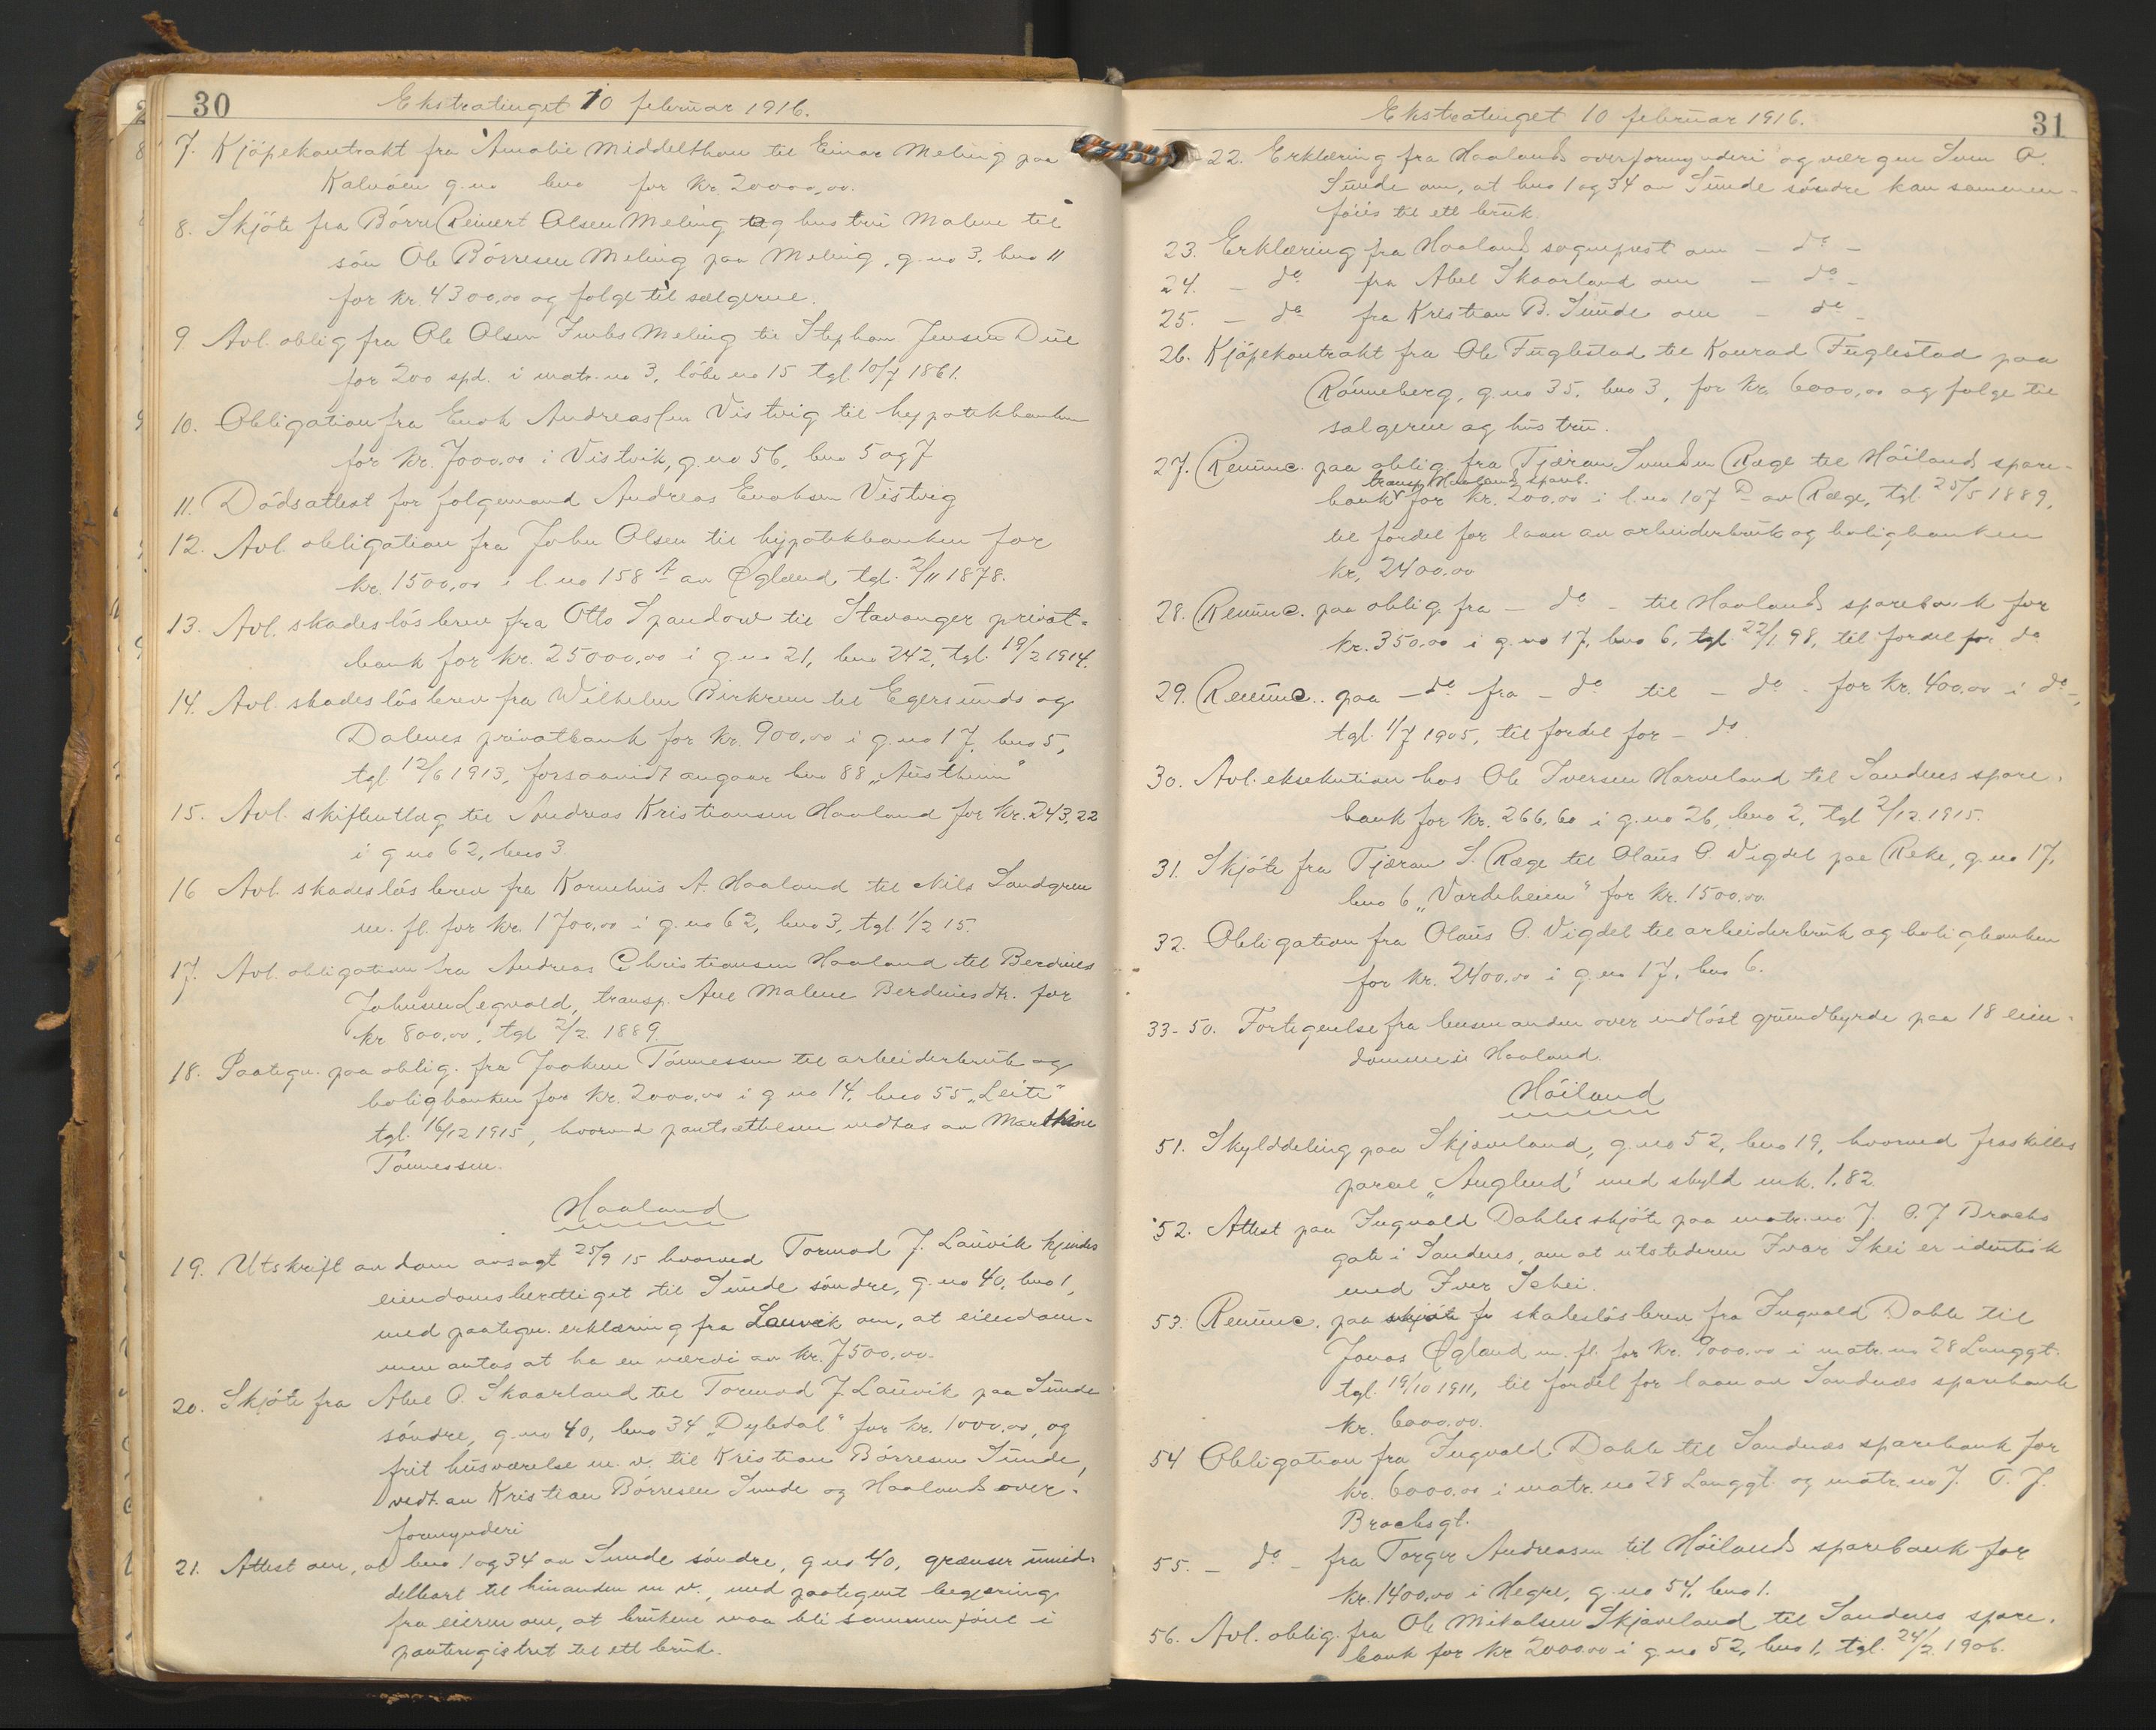 30
Ekstratinget 10 februar 1916.
7. Kjöpekontrakt fra Amalie Middelthon til Einar Meling paa
Kalvöen g.no bno for kr. 20000,00.
8. Skjöte fra Börre Reinert Olsen Meling og hustru Malene til
sön Ole Börresen Meling paa Meling, g.no 3, bno 11
for kr. 4300,00 og folge til sælgerne.
9. Avl. oblig fra Ole Olsen Meling til Stephan Jensen Due
for 200 spd. i matr. no 3, löbe no 15 tgl. 10/7 1861.
10. Obligation fra Enok Andreassen Vistvig til hypotekbanken
for kr. 7000,00 i Vistvik, g.no 56, bno 5 og 7
11. Dödsattest for folgemand Andreas Enoksen Vistvig
12. Avl. obligation fra John Olsen til hypotekbanken for
kr. 1500,00 i l.no 158 A av Øglænd tgl. 2/11 1878.
13. Avl. skadeslösbrev fra Otto Spandow til Stavanger privat-
bank for kr. 25000,00 i g.no 21, bno 242, tgl. 19/2 1914.
14. Avl. skadeslösbrev fra Wilhelm Birkrem til Egersunds og
Dalenes privatbank for kr. 900,00 i g.no 17, bno 5,
tgl. 12/6 1913, forsaavidt angaar bno 88 „Austheim"
15. Avl. skifteutlæg til Andreas Kristiansen Haaland for kr. 243,22
i g.no 62, bno 3.
16 Avl. skadeslösbrev fra Kornelius A. Haaland til Nils Sandgren
m. fl. for kr. 1700,00 i g.no 62, bno 3, tgl. 1/2 15.
17. Avl. obligation fra Andreas Christiansen Haaland til Berdines
Johnsen Legvold, transp. Ane Malene Berdinesdtr. for
kr 800,00, tgl 2/2 1889
18. Paategn. paa oblig. fra Joakim Tönnessen til arbeiderbruk og
boligbanken for kr. 2000,00 i g.no 14, bno 55 „Leite"
tgl. 16/12 1915, hvorved pantsættelsen vedtas av Marthine
Tönnessen.
Haaland
19. Utskrift av dom avsagt 25/9 15 hvorved Tormod J. Lauvik kjendes
eiendomsberettiget til Sunde söndre, g.no 40, bno 1,
med paategn. erklæring fra Lauvik om, at eiendom-
men antas at ha en værdi av kr. 7500,00.
20. Skjöte fra Abel O. Skaarland til Tormod J. Lauvik paa Sunde
söndre, g.no 40, bno 34 „Dybdal" for kr. 1000,00, og
frit husværelse m. v. til Kristian Börresen Sunde,
vedt. av Kristian Börresen Sunde og Haalands over-
formynderi
21. Attest om, at bno 1 og 34 av Sunde söndre, g.no 40, grænser umid-
delbart til hinanden m. v., med paategnet begjæring
fra eieren om, at brukene maa bli sammenföiet i
panteregistret til ett bruk.
31
Ekstratinget 10 februar 1916.
22. Erklæring fra Haalands overformynderi og værgen Sven O.
Sunde om, at bno 1 og 34 av Sunde söndre kan sammen-
föies til ett bruk.
23. Erklæring fra Haaland sogneprest om – do –
24. – do fra Abel Skaarland om – do –
25. – do fra Kristian B. Sunde om – do –
26. Kjöpekontrakt fra Ole Fuglestad til Konrad Fuglestad paa
Rönneberg, g.no 35, bno 3, for kr. 6000,00 og folge til
sælgeren og hustru.
27. Renunc. paa oblig fra Tjæran Svendsen Ræge til Höilands spare-
transp. Haalands spareb.
bank for kr. 200,00 i l.no 107 D av Ræge, tgl. 25/5 1889,
til fordel for laan av arbeiderbruk og boligbanken
kr. 2400,00
28. Renunc. paa oblig. fra – do – til Haalands sparebank for
kr. 350,00 i g.no 17, bno 6, tgl. 22/1 98, til fordel for do
29. Renunc. paa – do fra – do til – do – for kr. 400,00 i do –,
tgl. 1/7 1905, til fordel for – do
30. Avl. eksekution hos Ole Iversen Harveland til Sandnes spare-
bank for kr. 266,60 i g.no 26, bno 2, tgl 2/12 1915.
31. Skjöte fra Tjæran S. Ræge til Olaus O. Vigdel paa Reke, g.no 17,
bno 6 „Vardeheim" for kr. 1500,00.
32. Obligation fra Olaus O. Vigdel til arbeiderbruk og boligbanken
for kr. 2400,00 i g.no 17, bno 6.
33-50. Fortegnelse fra lensmanden over indlöst grundbyrde paa 18 eien-
domme i Haaland.
Höiland
51. Skylddeling paa Skjæveland, g.no 52, bno 19, hvorved fraskilles
parcel „Auglend" med skyld mk. 1.82.
52. Attest paa Ingvald Dahles skjöte paa matr. no 7 O. J Brochs
gate i Sandnes, om at utstederen Ivar Skei er identisk
med Iver Schei.
53. Renunc. paa skadeslösbrev fra Ingvald Dahle til
Jonas Øgland m. fl. for kr. 9000,00 i matr. no 28 Langgt.
tgl. 19/10 1911, til fordel for laan av Sandnæs sparebank
kr. 6000,00.
54 Obligation fra Ingvald Dahle til Sandnæs sparebank for
kr. 6000,00 i matr. no 28 Langgt. og matr. no 7. O. J.
Brochsgt.
55. – do – fra Torger Andreasen til Höilands sparebank for
kr. 1400,00 i Hegre, g.no 54, bno 1.
56. Avl. oblig. fra Ole Mikalsen Skjæveland til Sandnes spare-
bank for kr 2000,00 i g.no 52, bno 1, tgl. 24/2 1906.